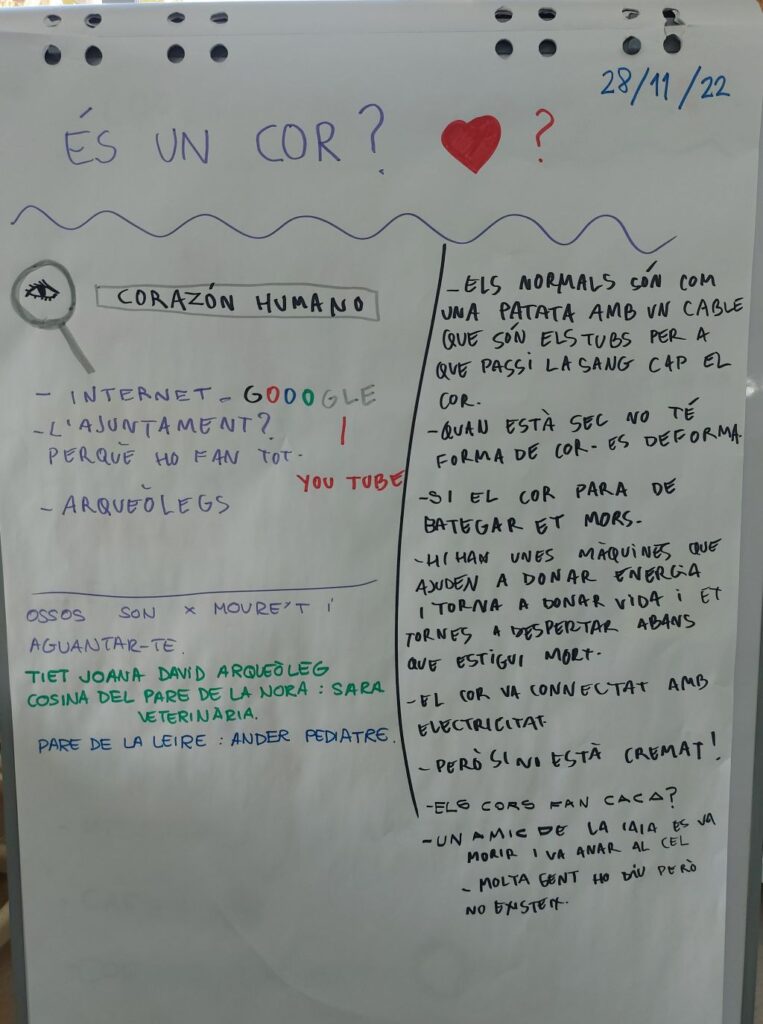 28/11/22
ÉS UN COR? ?
CORAZÓN HUMANO
- INTERNET - GOOOGLE
- L'AJUNTAMENT?
PERQUÈ HO FAN TOT.
YOU TUBE
- ARQUEÒLEGS
OSSOS SON x MOURE'T i
AGUANTAR-TE.
TIET JOANA DAVID ARQUEÒLEG
COSINA DEL PARE DE LA NORA : SARA
VETERINÀRIA.
PARE DE LA LEIRE : ANDER PEDIATRE.
- ELS NORMALS SÓN COM
UNA PATATA AMB UN CABLE
QUE SÓN ELS TUBS PER A
QUE PASSI LA SANG CAP EL
COR.
- QUAN ESTÀ SEC NO TÉ
FORMA DE COR - ES DEFORMA.
- SI EL COR PARA DE
BATEGAR ET MORS.
- HI HAN UNES MÀQUINES QUE
AJUDEN A DONAR ENERGIA
I TORNA A DONAR VIDA i ET
TORNES A DESPERTAR ABANS
QUE ESTIGUI MORT.
- EL COR VA CONNECTAT AMB
ELECTRICITAT.
- PERÒ SI NO ESTÀ CREMAT!
- ELS CORS FAN CACA?
- UN AMIC DE LA IAIA ES VA
MORIR I VA ANAR AL CEL
- MOLTA GENT HO DIU PERÒ
NO EXISTEIX.